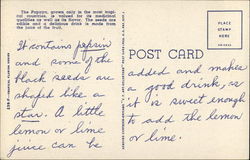 The Papaya, grown only in the most tropi-
cal countries, is valued for its medicinal
qualities as well as its flavor. The seeds are
edible and a delicious drink is made from
the juice of the fruit.
It contains pepsin
and some of the
black seeds are
shaped like a
star. A little
lemon or lime
juice can be
POST CARD
PLACE
STAMP
HERE
added and makes
a good drink, as
it is sweet enough
to add the lemon
or lime.